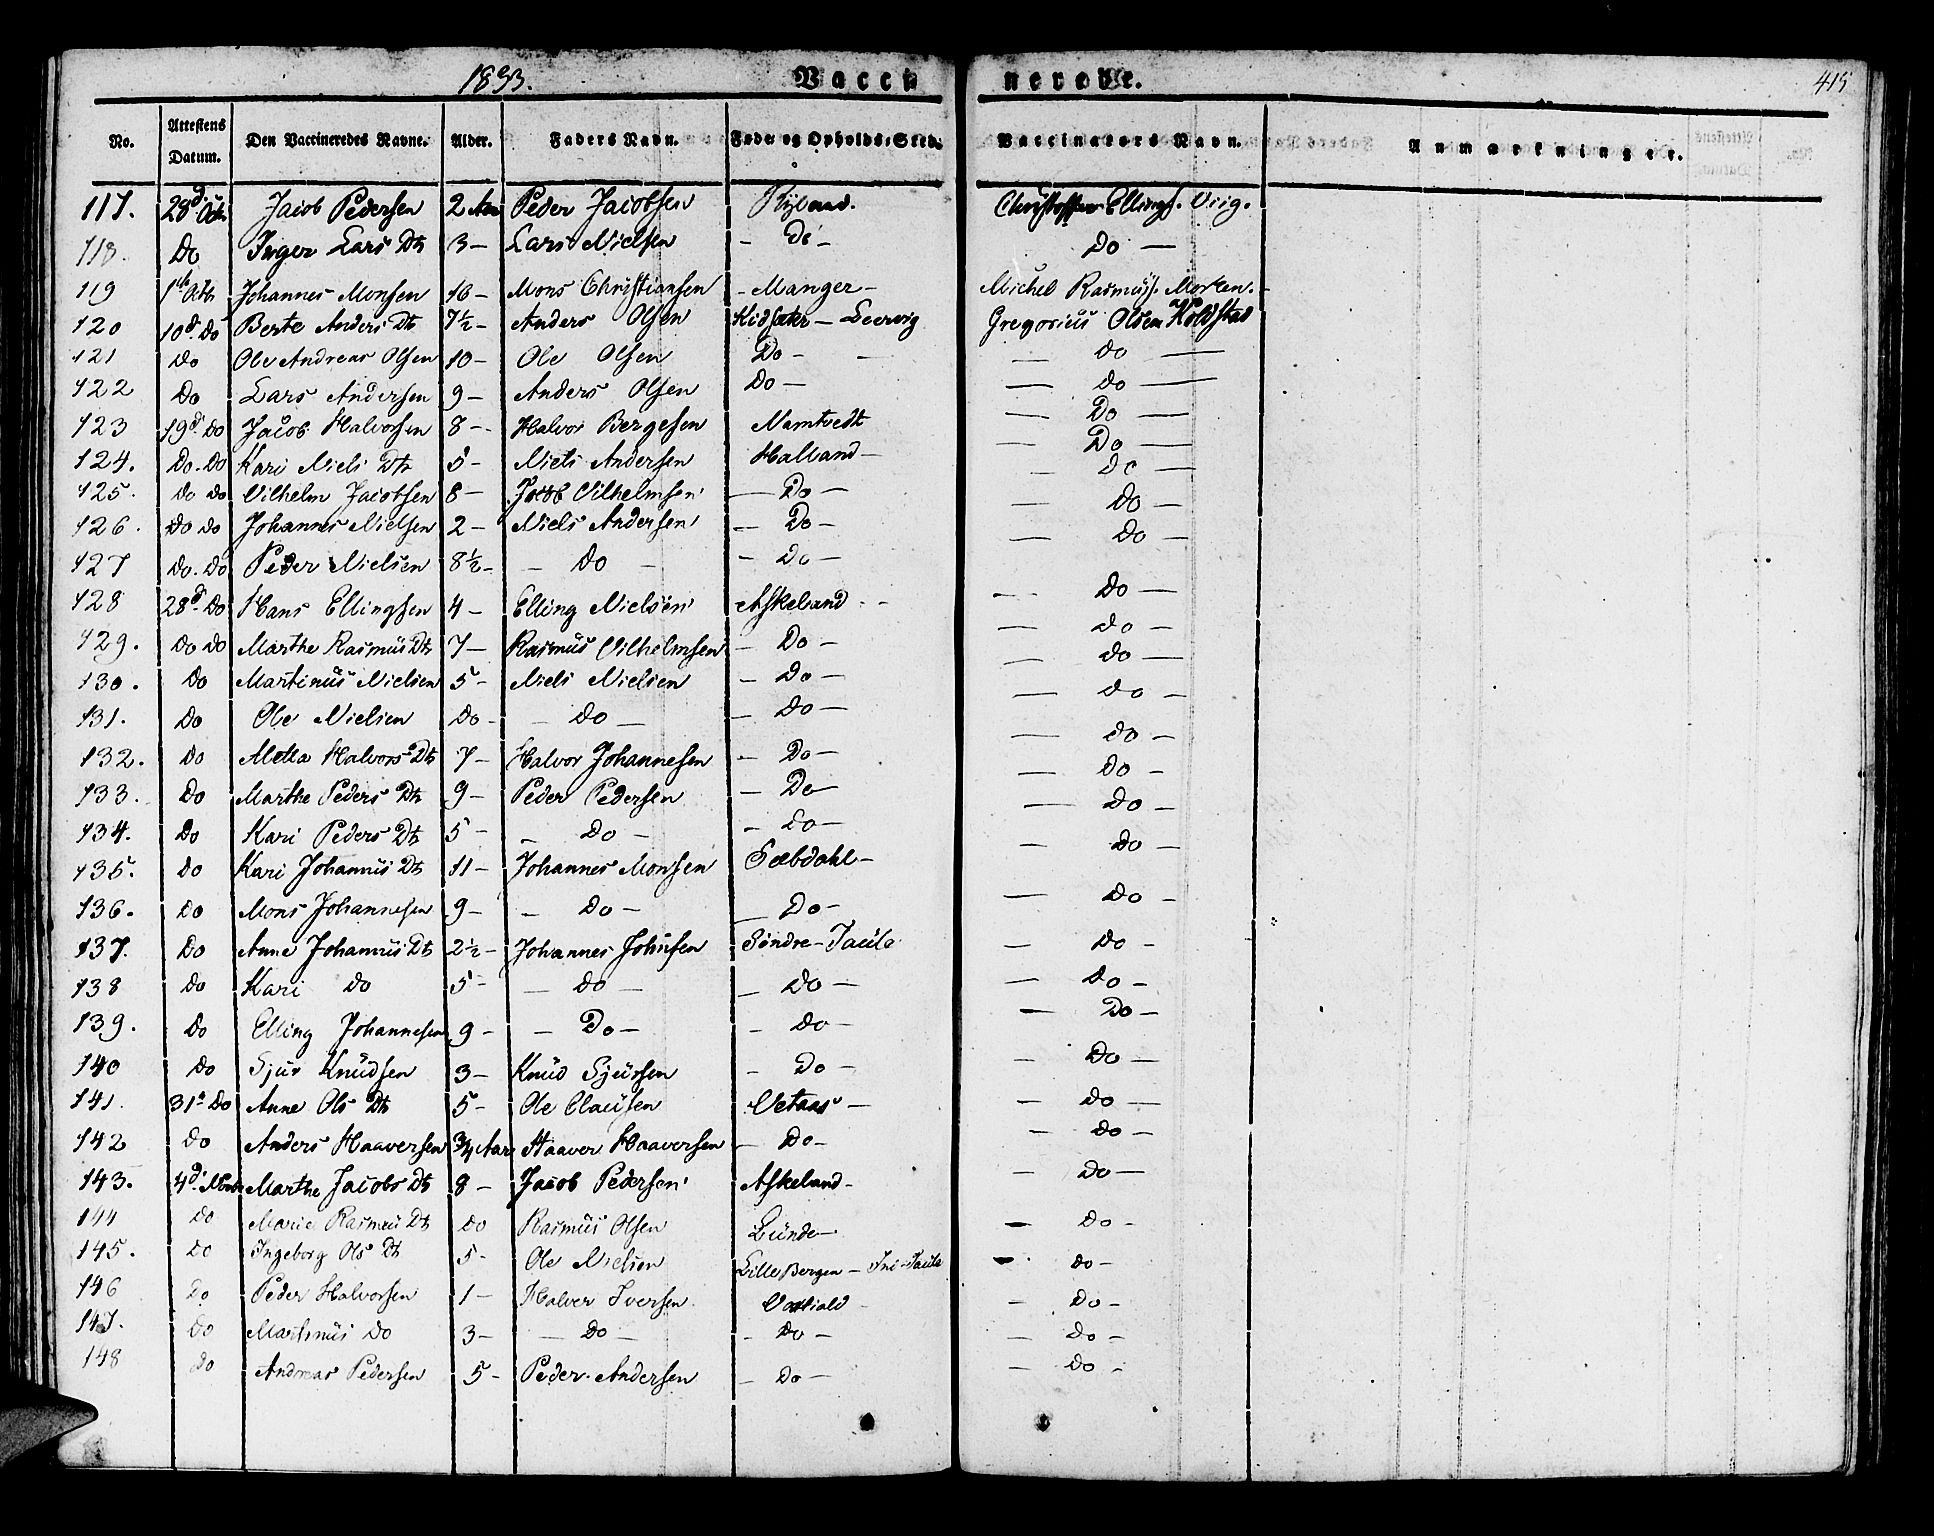 1833. Vacci nerede. 415
No. Attestens Datum. Den Vaccineredes Navne. Alder. Faders Navn. Føde og Opholds-Sted. Vaccinators Navn. Anmærkninger.
117. 28d Octr Jacob Pedersen 2 Aar Peder Jacobsen Ryland. Christoffer Ellings. Urig.
118. Do Inger Lars Dtr 3 - Lars Nielsen - Do - Do -
119 1ste Johannes Monsen 16 - Mons Christiansen - Manger - Michel Rasmus. Morken. -
120 10d. Do Berte Anders Dtr 7½ - Anders Olsen Kidsæter - Leervig Gregorius Olsen Koldstad
121 Do Ole Andreas Olsen 10 - Ole Olsen Do - - - Do -
122 Do Lars Andersen 9 - Anders Olsen Do - - Do -
123 19d. Do Jacob Halvorsen 8 - Halvor Bergesen Namtvedt - Do -
124. Do. Do Kari Niels Dtr 5 - Niels Andersen Halland - - Do -
125. Do Do Vilhelm Jacobsen 8 - Jacob Vilhelmsen - Do - - Do -
126. Do Do Johannes Nielsen 2 - Niels Andersen - Do - - Do -
127 Do. Do Peder Nielsen 8½ - - Do - - Do - - Do -
128 28d. Do Hans Ellingsen 4 - Elling Nielsen Askeland - - - Do -
129. Do Do Marthe Rasmus Dtr 7 - Rasmus Vilhelmsen - Do - - Do -
130. Do Martinus Nielsen 5 - Niels Nielsen - Do - - Do -
131. Do Ole Nielsen Do - - Do - - Do - - Do -
132. Do Metta Halvors Dtr 7 - Halvor Johannesen - Do - - Do -
133. Do Marthe Peders Dtr 9 - Peder Pedersen - Do - - Do -
134. Do Kari Peders Dtr 5 - - Do - - Do - - Do -
135. Do Kari Johannis Dtr 11 - Johannes Monsen Sæbdahl - - Do -
136. Do Mons Johannesen 9 - - Do - - Do - - Do -
137. Do Anne Johannis Dtr 2½ - Johannes Johnsen Søndre - Taule - Do -
138 Do Kari Do 5 - - Do - - Do - - Do -
139. Do Elling Johannesen 9 - - Do - - Do - - Do -
140 Do Sjur Knudsen 3 - Knud Sjursen - Do - - Do -
141. 31. Do Anne Ols Dtr 5 - Ole Clausen Vetaas - - Do -
142 Do Anders Haaversen ¾ Aar Haaver Haaversen - Do - - Do -
143. 4d. Novbr Marthe Jacobs Dtr 8 - Jacob Pedersen Askeland - - Do -
144 Do Marie Rasmus Dtr Do Rasmus Olsen Lunde - - Do -
145. Do Ingeborg Ols Dt 5 - Ole Nielsen Lille Bergen - Taule - Do -
146 Do Peder Halvorsen 1 - Halver Iversen - Do -
147. Do Martinus Do 3 - - Do - - Do - - Do -
148 Do Andreas Pedersen 5 - Peder Andersen - Do - - Do -